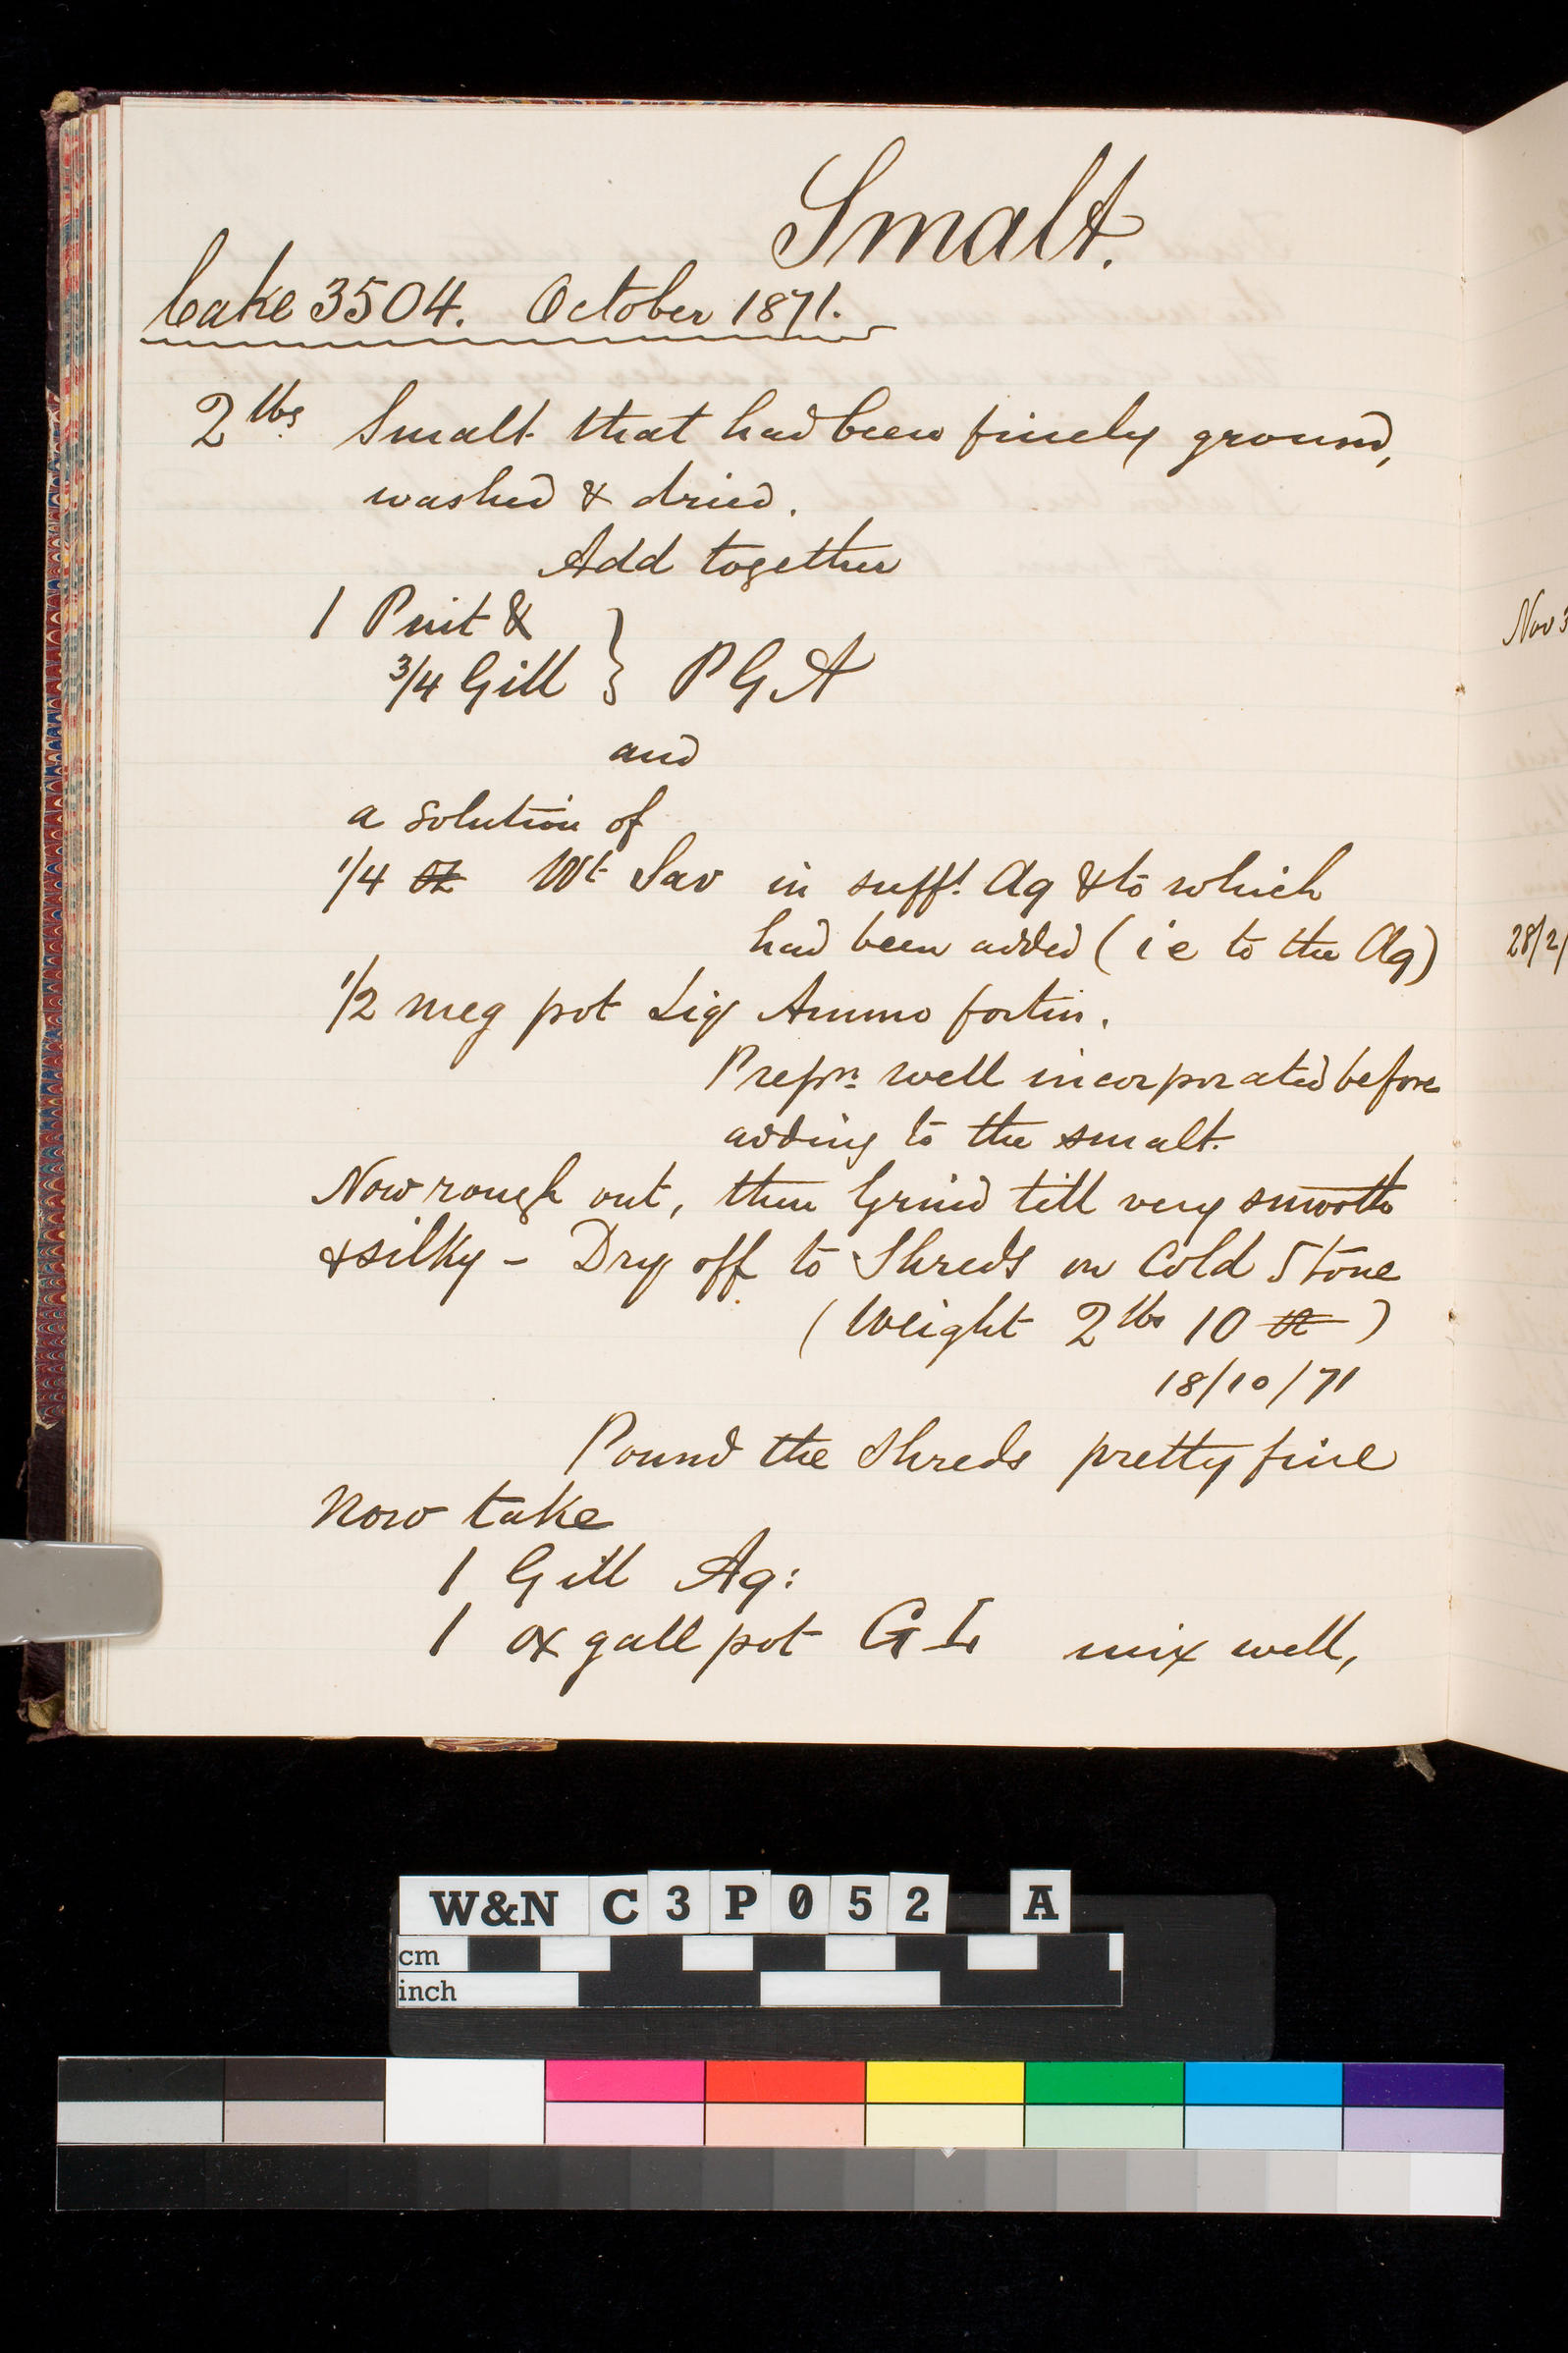 Smalt.
Cake 3504. October 1871.
2 lbs Smalt that had been finely ground,
washed & dried.
Add together
1 Pint &
3/4 Gill } P G A
and
a solution of
1/4 oz Wt Sav in sufft Aq & to which
had been added (i e to the Aq)
1/2 meg pot Liq Ammo fortis.
Prepn well incorporated before
adding to the smalt.
Now rough out, then Grind till very smooth
& silky - Dry off to Shreds on Cold Stone
(Weight 2 lbs 10 oz)
18/10/71
Pound the shreds pretty fine
Now take
1 Gill Aq:
1 ox gall pot G L mix well,
Nov 3
28/2/
W&N C3P052 A
cm
inch